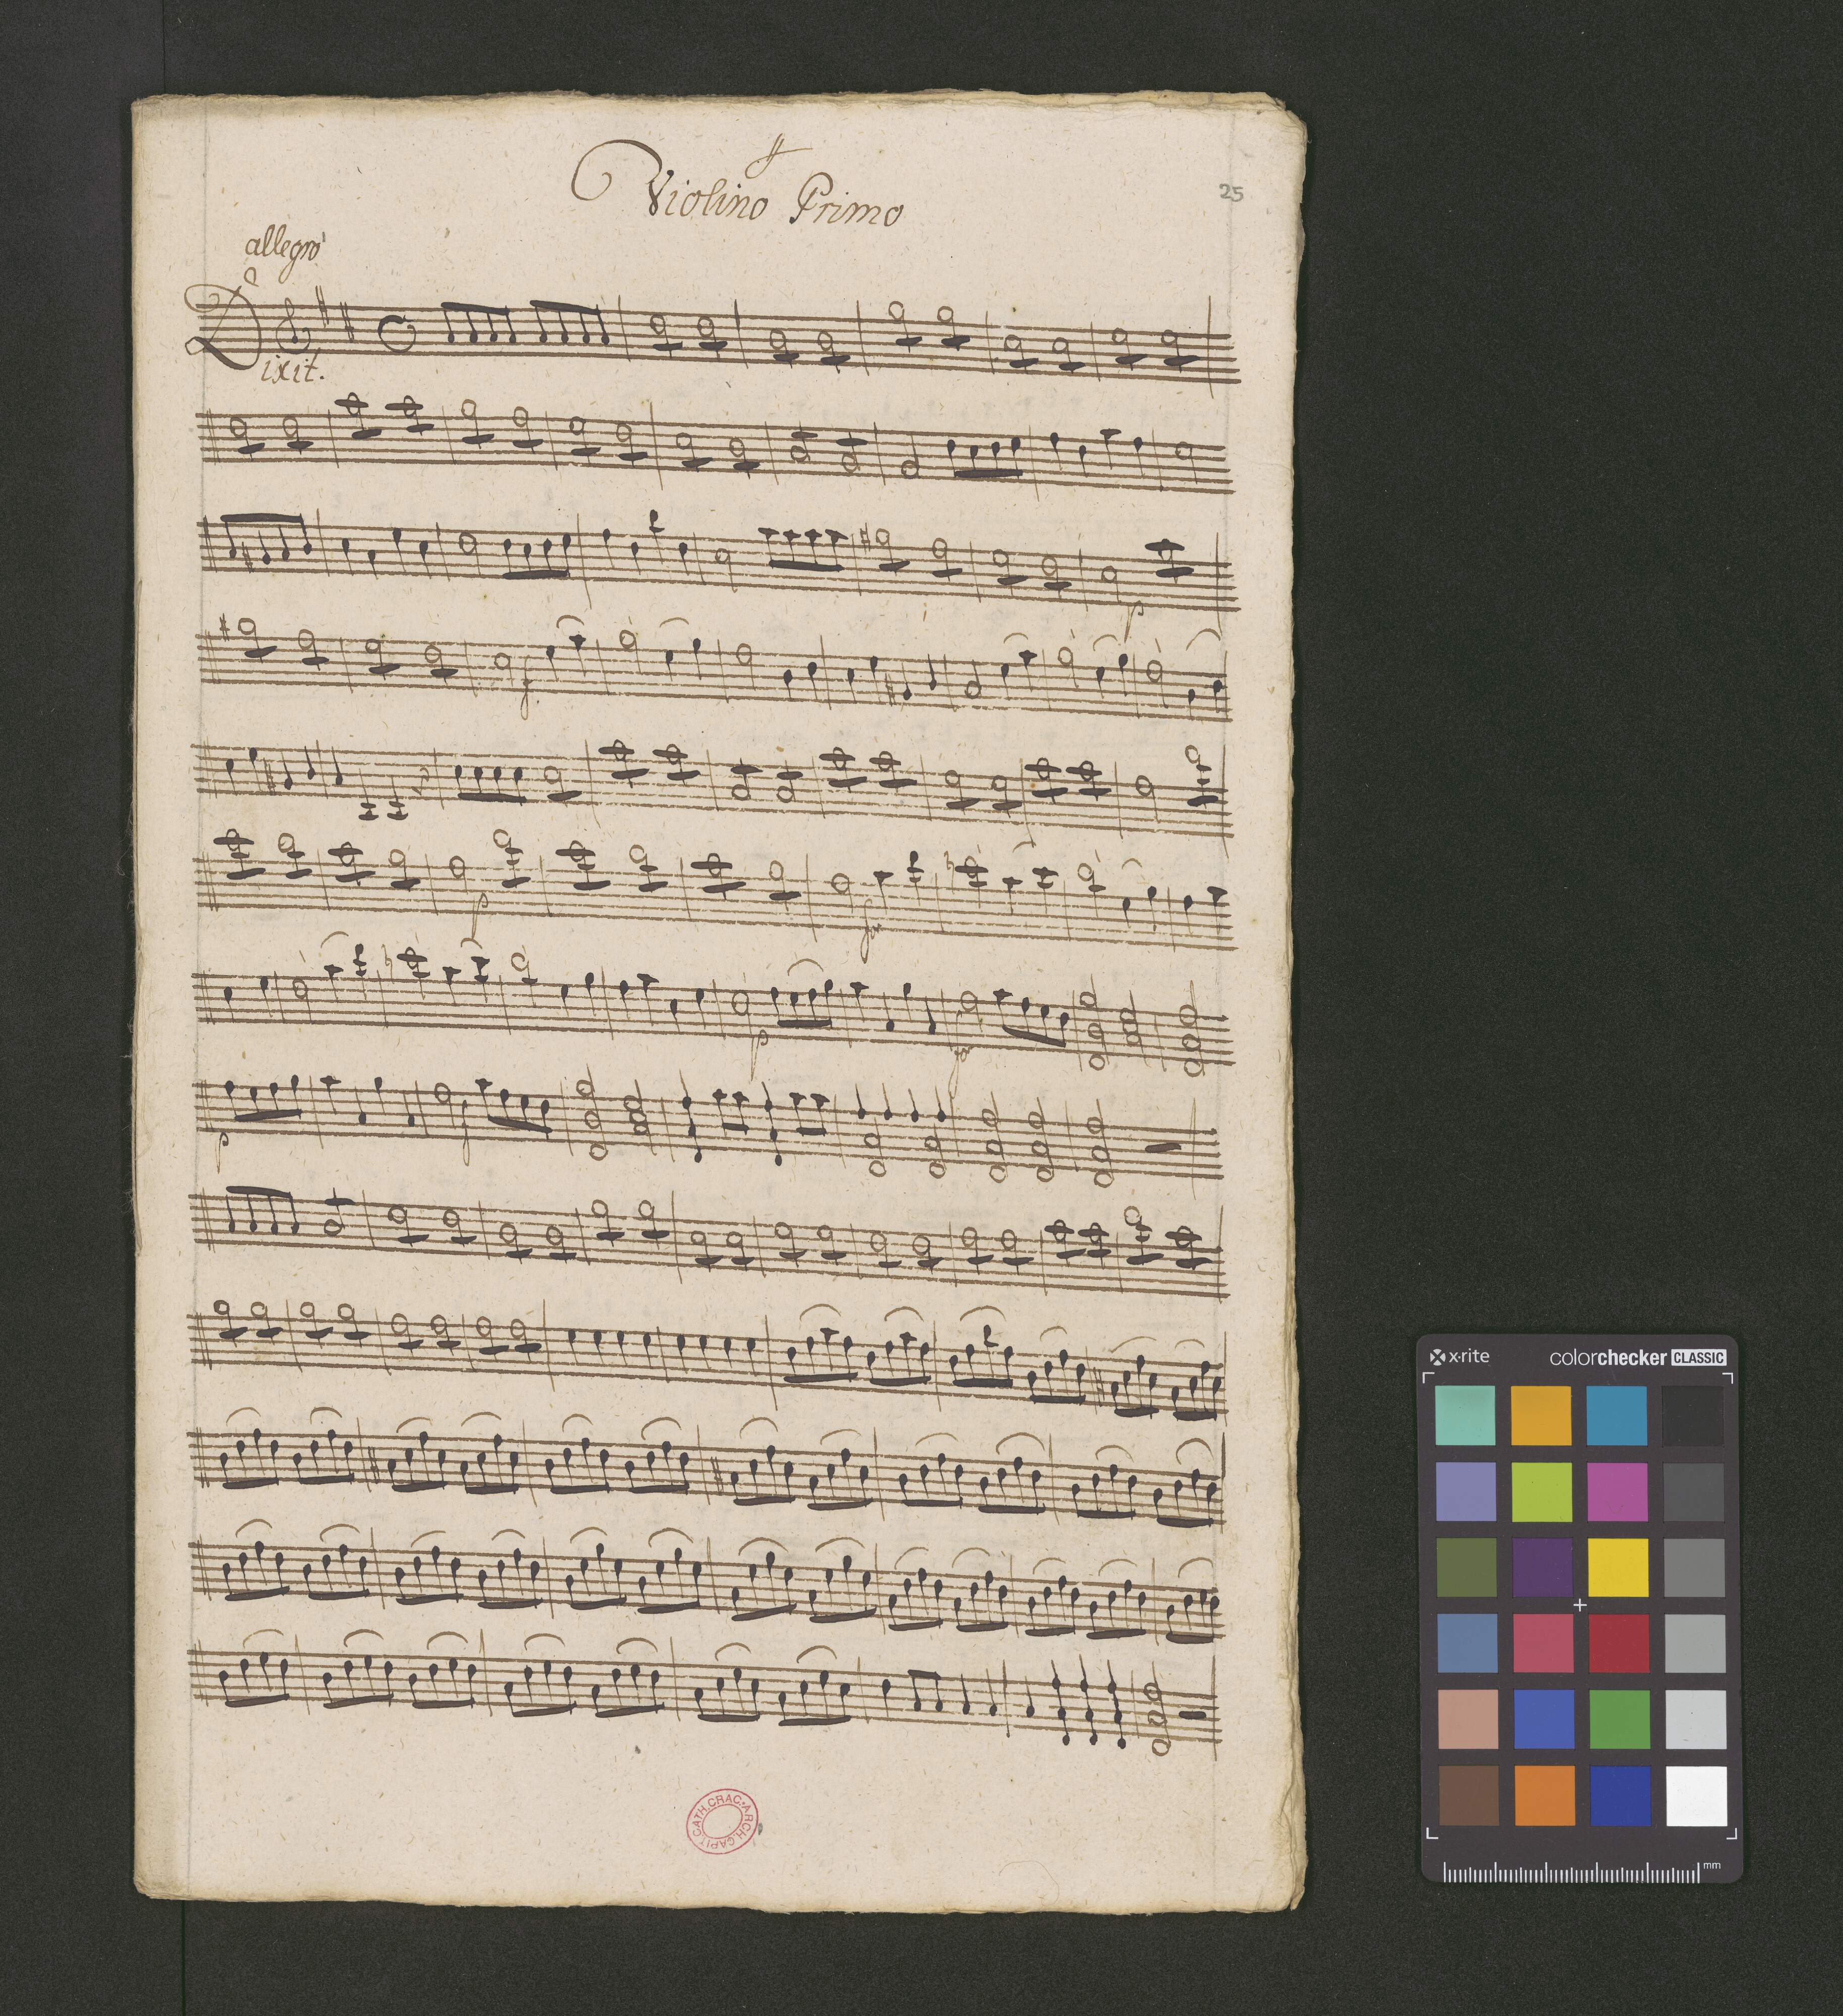 Violino Primo
25
allegro
Dixit.
p
f
p
for
p
for
p
f
ARCH. CAPIT. CATH. CRAC.
x-rite
colorchecker CLASSIC
mm